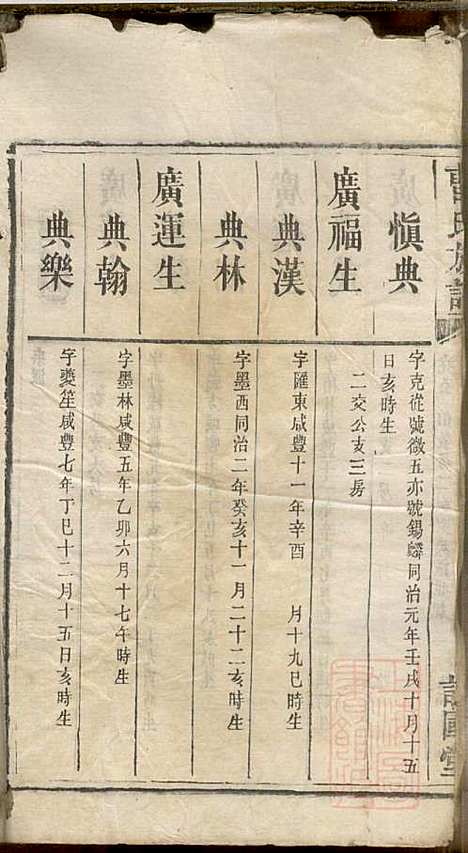 氏族譜
慎典
字克從號徵五亦號錫麟同治元年壬戌十月十五
日亥時生
廣福生
二交公支三房
典漢
字匯東咸豐十一年辛酉 月十九巳時生
典林
字墨西同治二年癸亥十一月二十二亥時生
廣運生
典翰
字墨林咸豐五年乙卯六月十七午時生
典樂
字夔笙咸豐七年丁巳十二月十五日亥時生